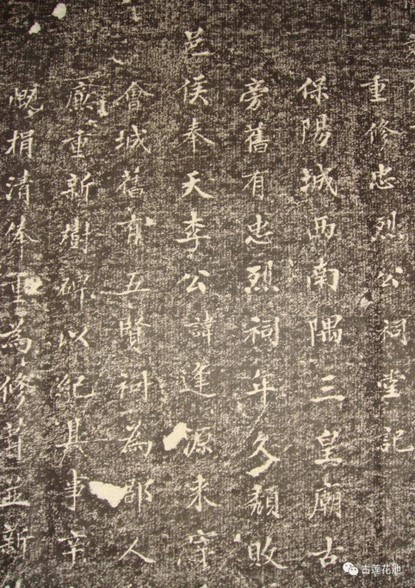 重修忠烈公祠堂記
保陽城西南隅三皇廟古
旁舊有忠烈祠年久頹敗
邑侯奉天李公諱逢源未
會城舊有五賢祠為郡人
廠重新樹碑以紀其事辛
慨捐清俸重為修葺並新
古莲花池